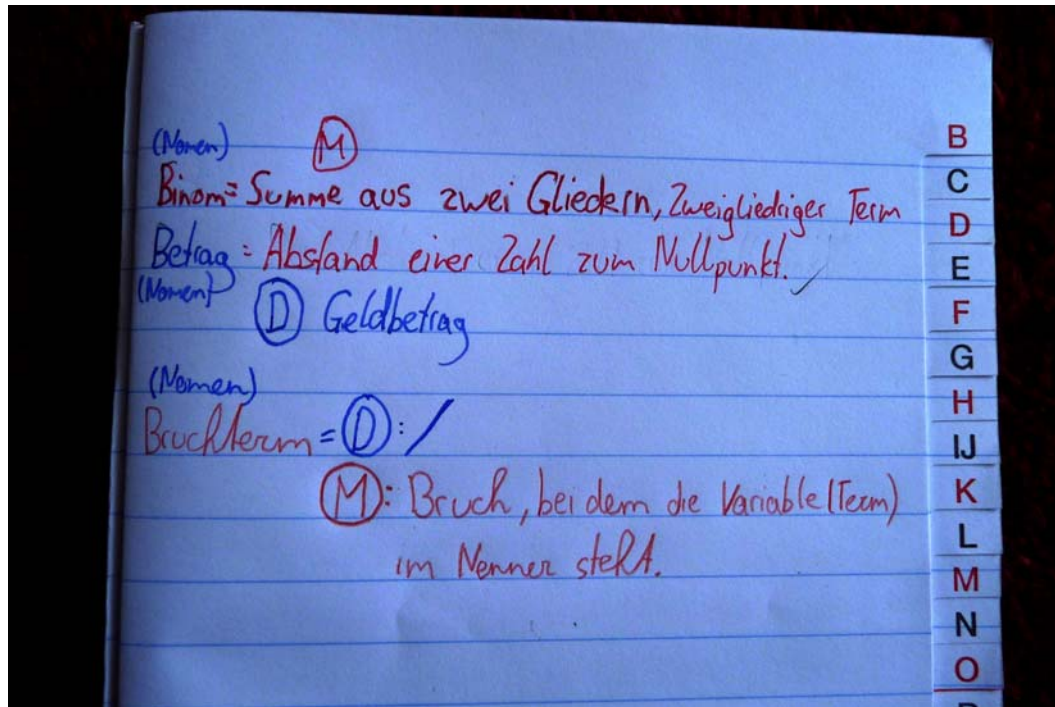 (Nomen) M
Binom = Summe aus zwei Gliedern, Zweigliedriger Term
Betrag = Abstand einer Zahl zum Nullpunkt.
(Nomen)
D Geldbetrag
(Nomen)
Bruchterm = D : /
M : Bruch, bei dem die Variable (Term)
im Nenner steht.
B
C
D
E
F
G
H
IJ
K
L
M
N
O